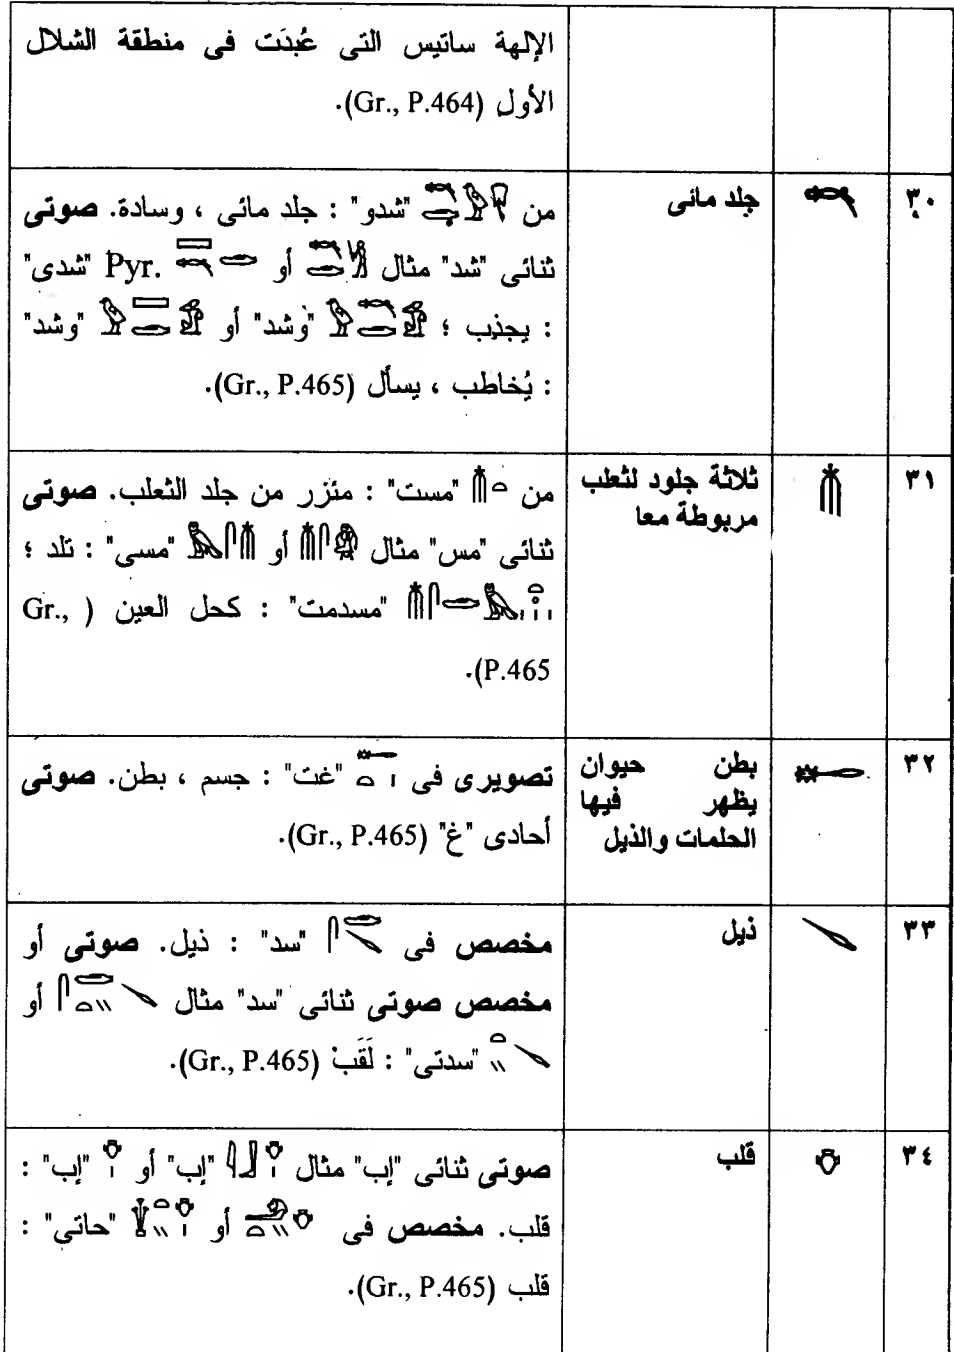 الإلهة ساتيس التى عُبدَت فى منطقة الشلال
الأول (Gr., P.464).
٣٠ جلد مائى من "شدو" : جلد مائى ، وسادة. صوتى
ثنائى "شد" مثال أو Pyr. "شدى"
: يجذب ؛ "وشد" أو "وشد"
: يُخاطب ، يسأل (Gr., P.465).
٣١ ثلاثة جلود لثعلب من "مست" : مئزر من جلد الثعلب. صوتى
مربوطة معا ثنائى "مس" مثال أو "مسى" : تلد ؛
"مسدمت" : كحل العين (Gr.,
P.465).
٣٢ بطن حيوان تصويرى فى "غت" : جسم ، بطن. صوتى
يظهر فيها أحادى "غ" (Gr., P.465).
الحلمات والذيل
٣٣ ذيل مخصص فى "سد" : ذيل. صوتى أو
مخصص صوتى ثنائى "سد" مثال أو
"سدتى" : لَقَبْ (Gr., P.465).
٣٤ قلب صوتى ثنائى "إب" مثال "إب" أو "إب" :
قلب. مخصص فى أو "حاتى" :
قلب (Gr., P.465).